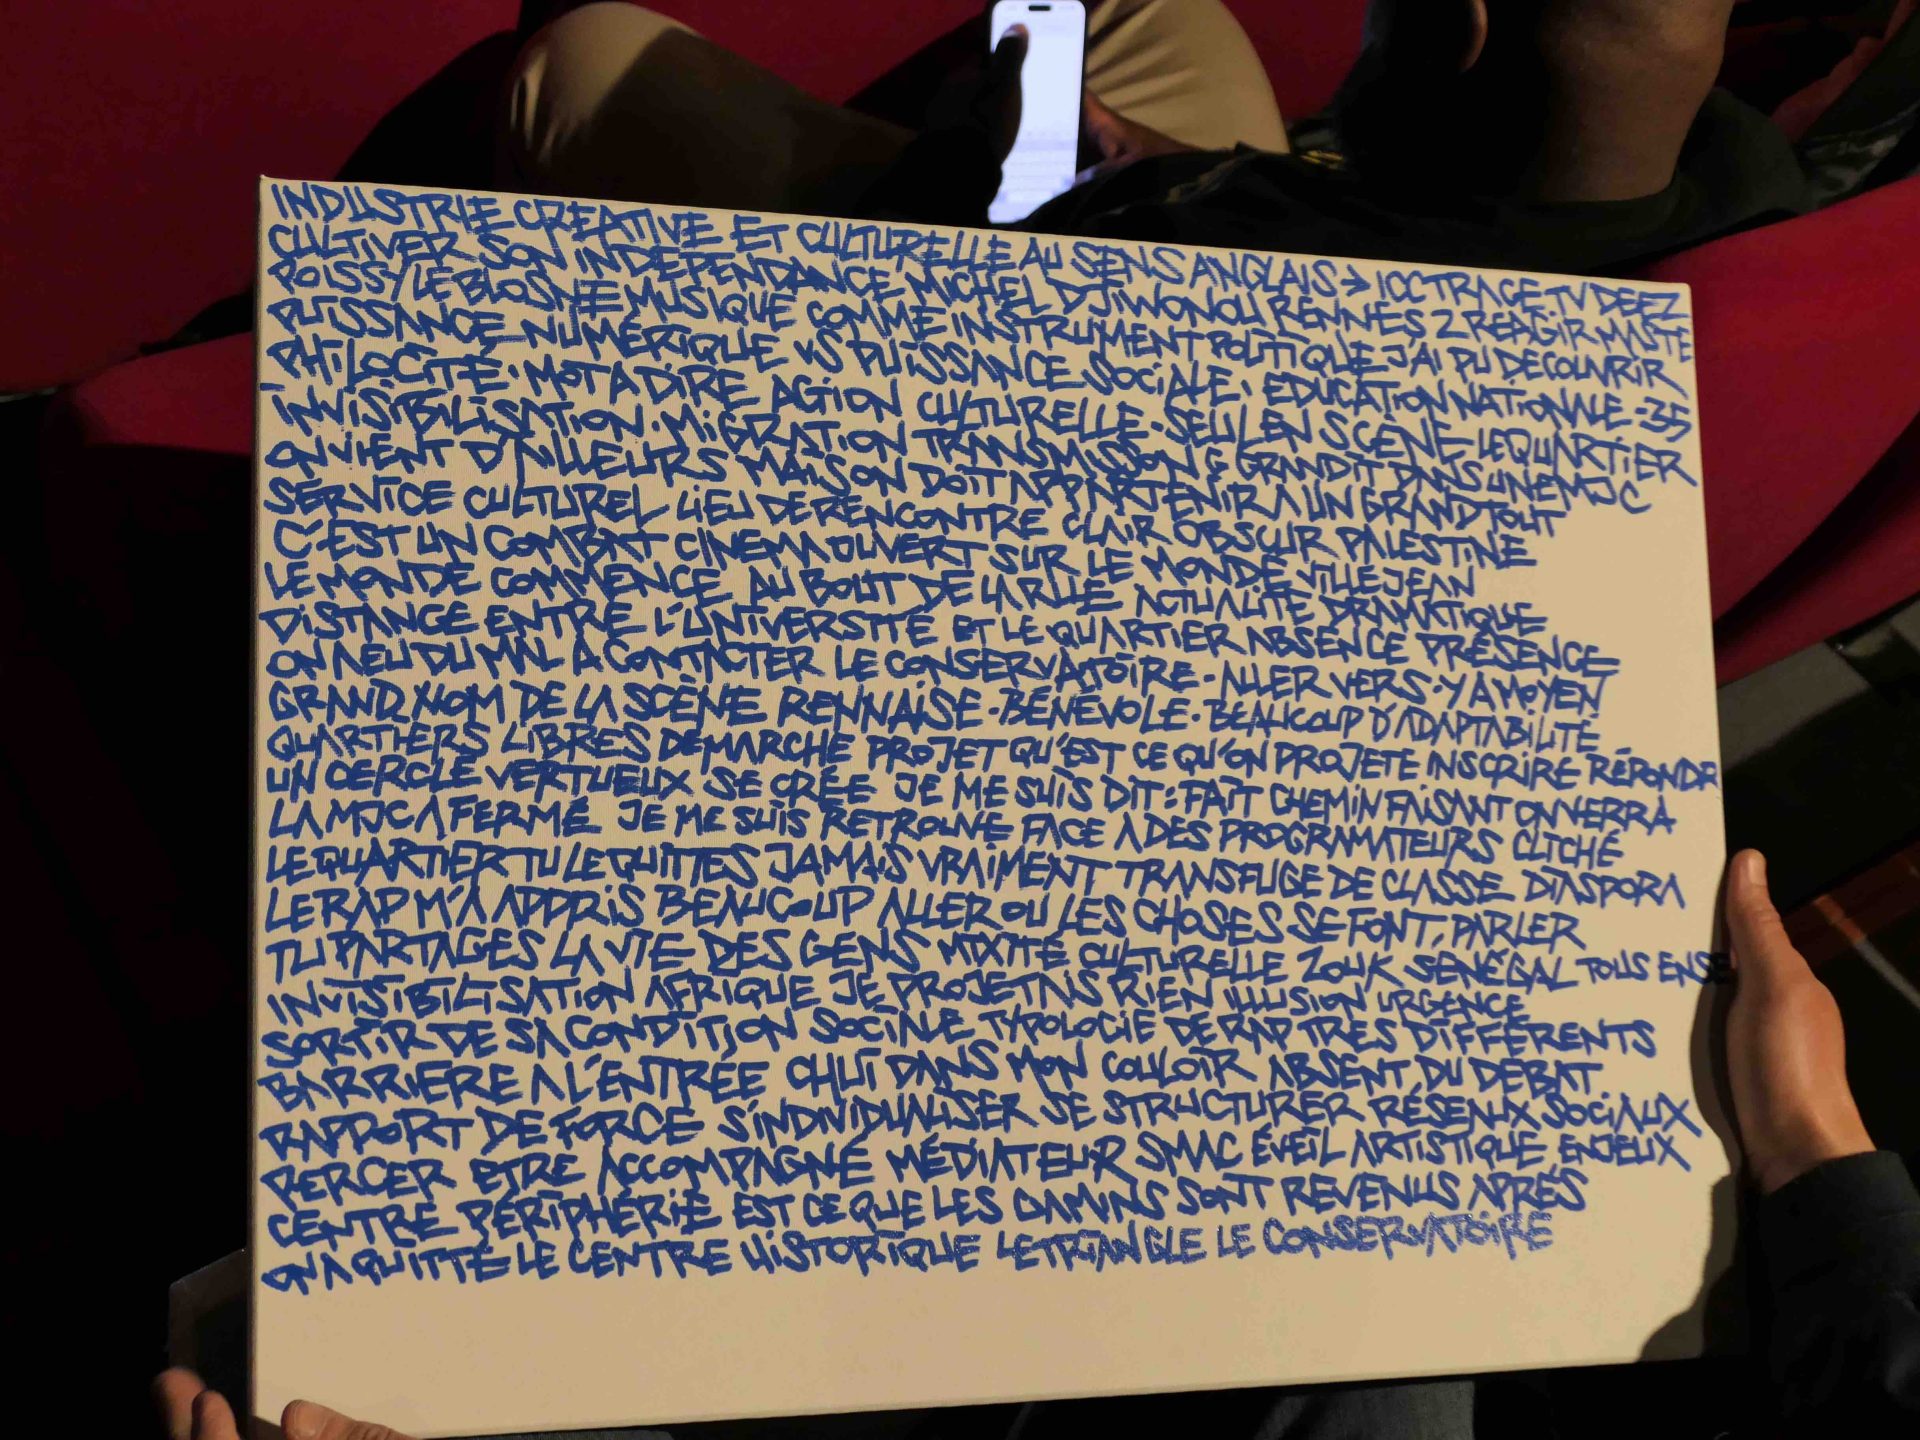 INDUSTRIE CREATIVE ET CULTURELLE AU SENS ANGLAIS → ICC TRACE TV DEEZ
CULTIVER SON INDEPENDANCE MICHEL DJIWONOU RENNES 2 REAGIR MASTE
POISSY LE BLOSNE MUSIQUE COMME INSTRUMENT POLITIQUE J'AI PU DECOUVRIR
PUISSANCE NUMÉRIQUE VS PUISSANCE SOCIALE. EDUCATION NATIONALE - 35
PHILOCITÉ. MOT A DIRE ACTION CULTURELLE. SEUL EN SCÈNE LE QUARTIER
INVISIBILISATION. MIGRATION TRANSMISSON GRANDIT DANS UNE MJC
ON VIENT D'AILLEURS MAIS ON DOIT APPARTENIR A UN GRAND TOUT
SERVICE CULTUREL LIEU DE RENCONTRE CLAIR OBSCUR PALESTINE
C'EST UN COMBAT CINEMA OUVERT SUR LE MONDE VILLEJEAN
LE MONDE COMMENCE AU BOUT DE LA RUE ACTUALITÉ DRAMATIQUE
DISTANCE ENTRE L'UNIVERSITÉ ET LE QUARTIER ABSENCE PRÉSENCE
ON A EU DU MAL A CONTACTER LE CONSERVATOIRE. ALLER VERS. Y A MOYEN
GRAND NOM DE LA SCÈNE RENNAISE. BÉNÉVOLE. BEAUCOUP D'ADAPTABILITÉ
QUARTIERS LIBRES DÉMARCHE PROJET QU'EST CE QU'ON PROJETE INSCRIRE RÉPONDR
UN CERCLE VERTUEUX SE CRÉE JE ME SUIS DIT : FAIT CHEMIN FAISANT ON VERRA
LA MJC A FERMÉ JE ME SUIS RETROUVÉ FACE A DES PROGRAMATEURS CLICHÉ
LE QUARTIER TU LE QUITTES JAMAIS VRAIMENT TRANSFUGE DE CLASSE DIASPORA
LE RAP M'A APPRIS BEAUCOUP ALLER OU LES CHOSES SE FONT, PARLER
TU PARTAGES LA VIE DES GENS MIXITÉ CULTURELLE ZOUK SÉNÉGAL TOUS ENSE
INVISIBILISATION AFRIQUE JE PROJETAIS RIEN ILLUSION URGENCE
SORTIR DE SA CONDITION SOCIALE TYPOLOGIE DE RAP TRÈS DIFFÉRENTS
BARRIERE A L'ENTRÉE CHUI DANS MON COULOIR ABSENT DU DÉBAT
RAPPORT DE FORCE S'INDIVIDUALISER SE STRUCTURER RÉSEAUX SOCIAUX
PERCER ETRE ACCOMPAGNÉ MÉDIATEUR SMAC ÉVEIL ARTISTIQUE ENJEUX
CENTRE PÉRIPHÉRIE EST CE QUE LES GAMINS SONT REVENUS APRÉS
ON A QUITTÉ LE CENTRE HISTORIQUE LE TRIANGLE LE CONSERVATOIRE